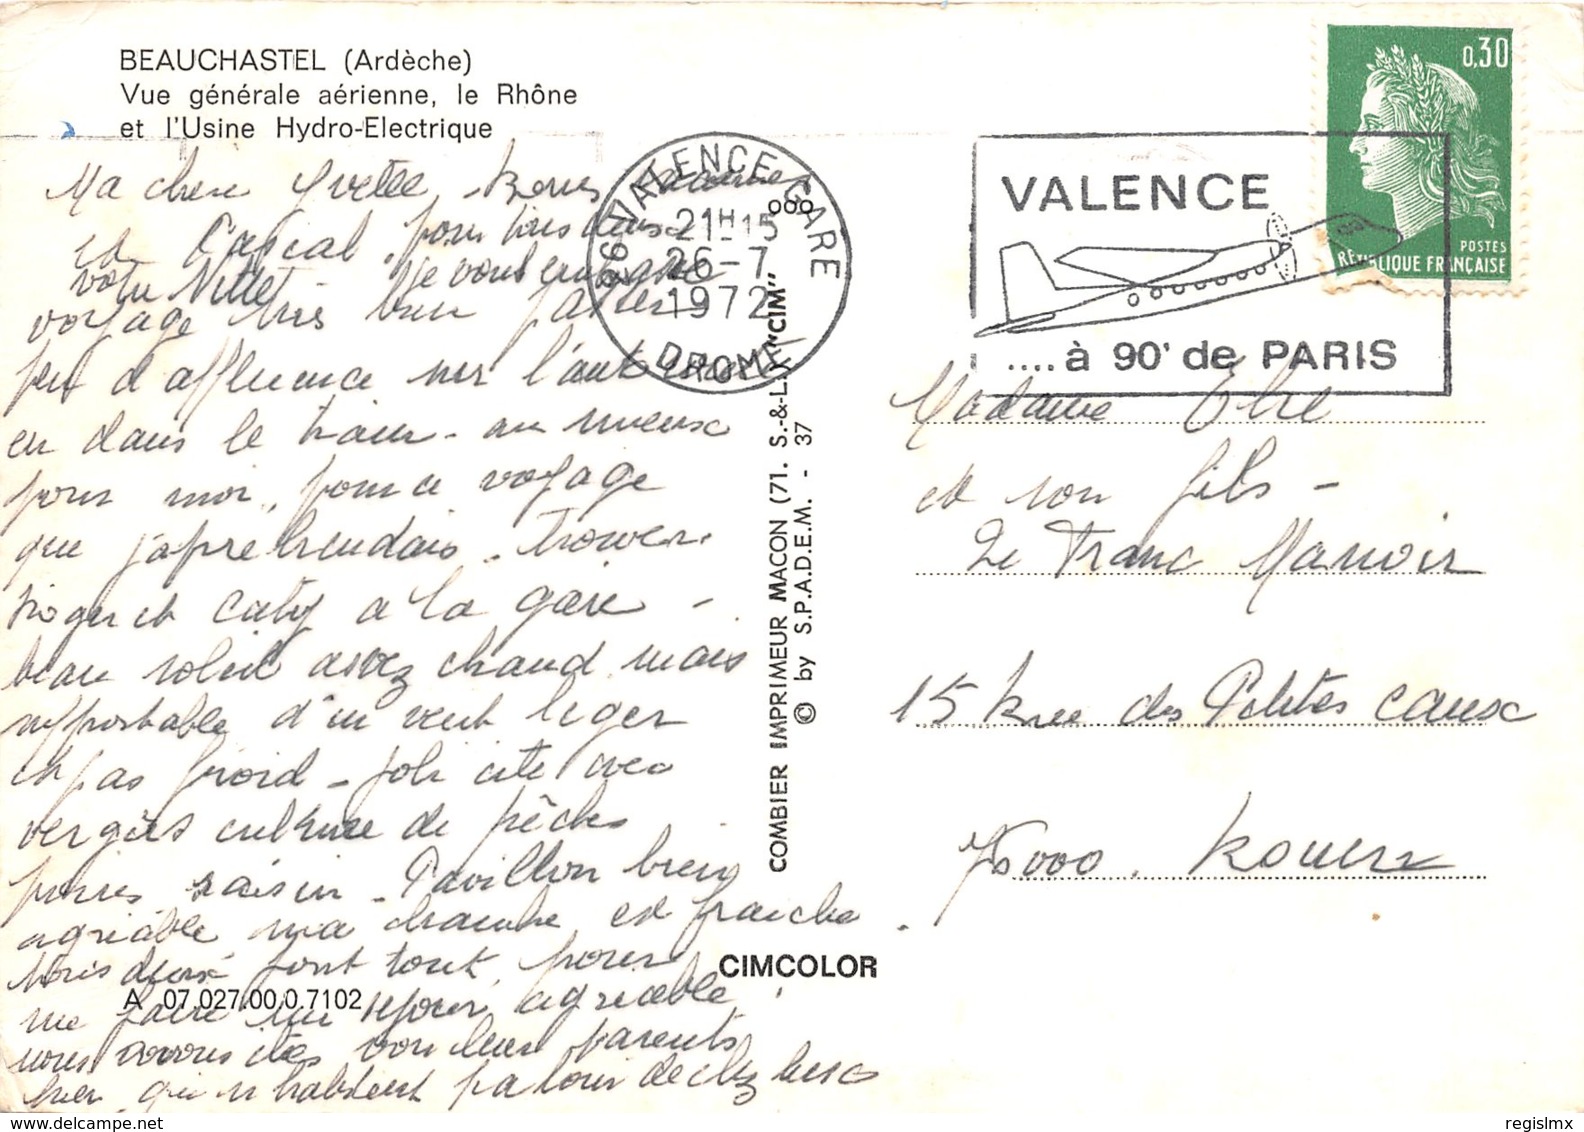 BEAUCHASTEL (Ardèche)
Vue générale aérienne, le Rhône
et l'Usine Hydro-Electrique
Ma chère Yvette, Bons
et Pascal. pour tous deux
votre Je vous
voyage très bien
peu d'affluence sur l'
et dans le train - au mieux
pour moi, pour ce voyage
que j'apréhendais. Trouver
Roger et Caty a la gare -
beau soleil assez chaud mais
supportable d'un vent leger
et pas froid - joli cite avec
vergers culture de pêches
poires raisin - Pavillon bien
agréable ma chambre est fraiche.
tous deux font tout pour
me faire un sejour agréable
nous avons étés voir leur parents
hier qui n habitent pa loin de chez eux
86 VALENCE-GARE
21H15
26-7
1972
DROME
VALENCE
....à 90' de PARIS
0,30
POSTES
RÉPUBLIQUE FRANÇAISE
Madame
et son fils -
Le Franc Manoir
15 Rue des Petites Eaux
76000. Rouen
COMBIER IMPRIMEUR MACON (71. S.-&-L.) "CIM"
© by S.P.A.D.E.M. - 37
CIMCOLOR
A 07.027.00.0.7102
regislmx